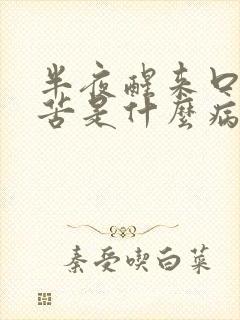 半夜醒来口
苦是什麼病
秦受喫白菜